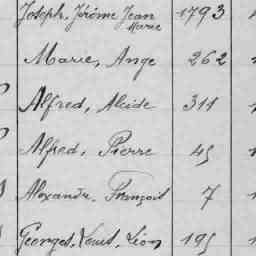 Joseph, Jérôme Jean Marie 1793
Marie, Ange 262
Alfred, Alcide 311
Alfred, Pierre 45
Alexandre, François 7
Georges, Louis, Léon 195